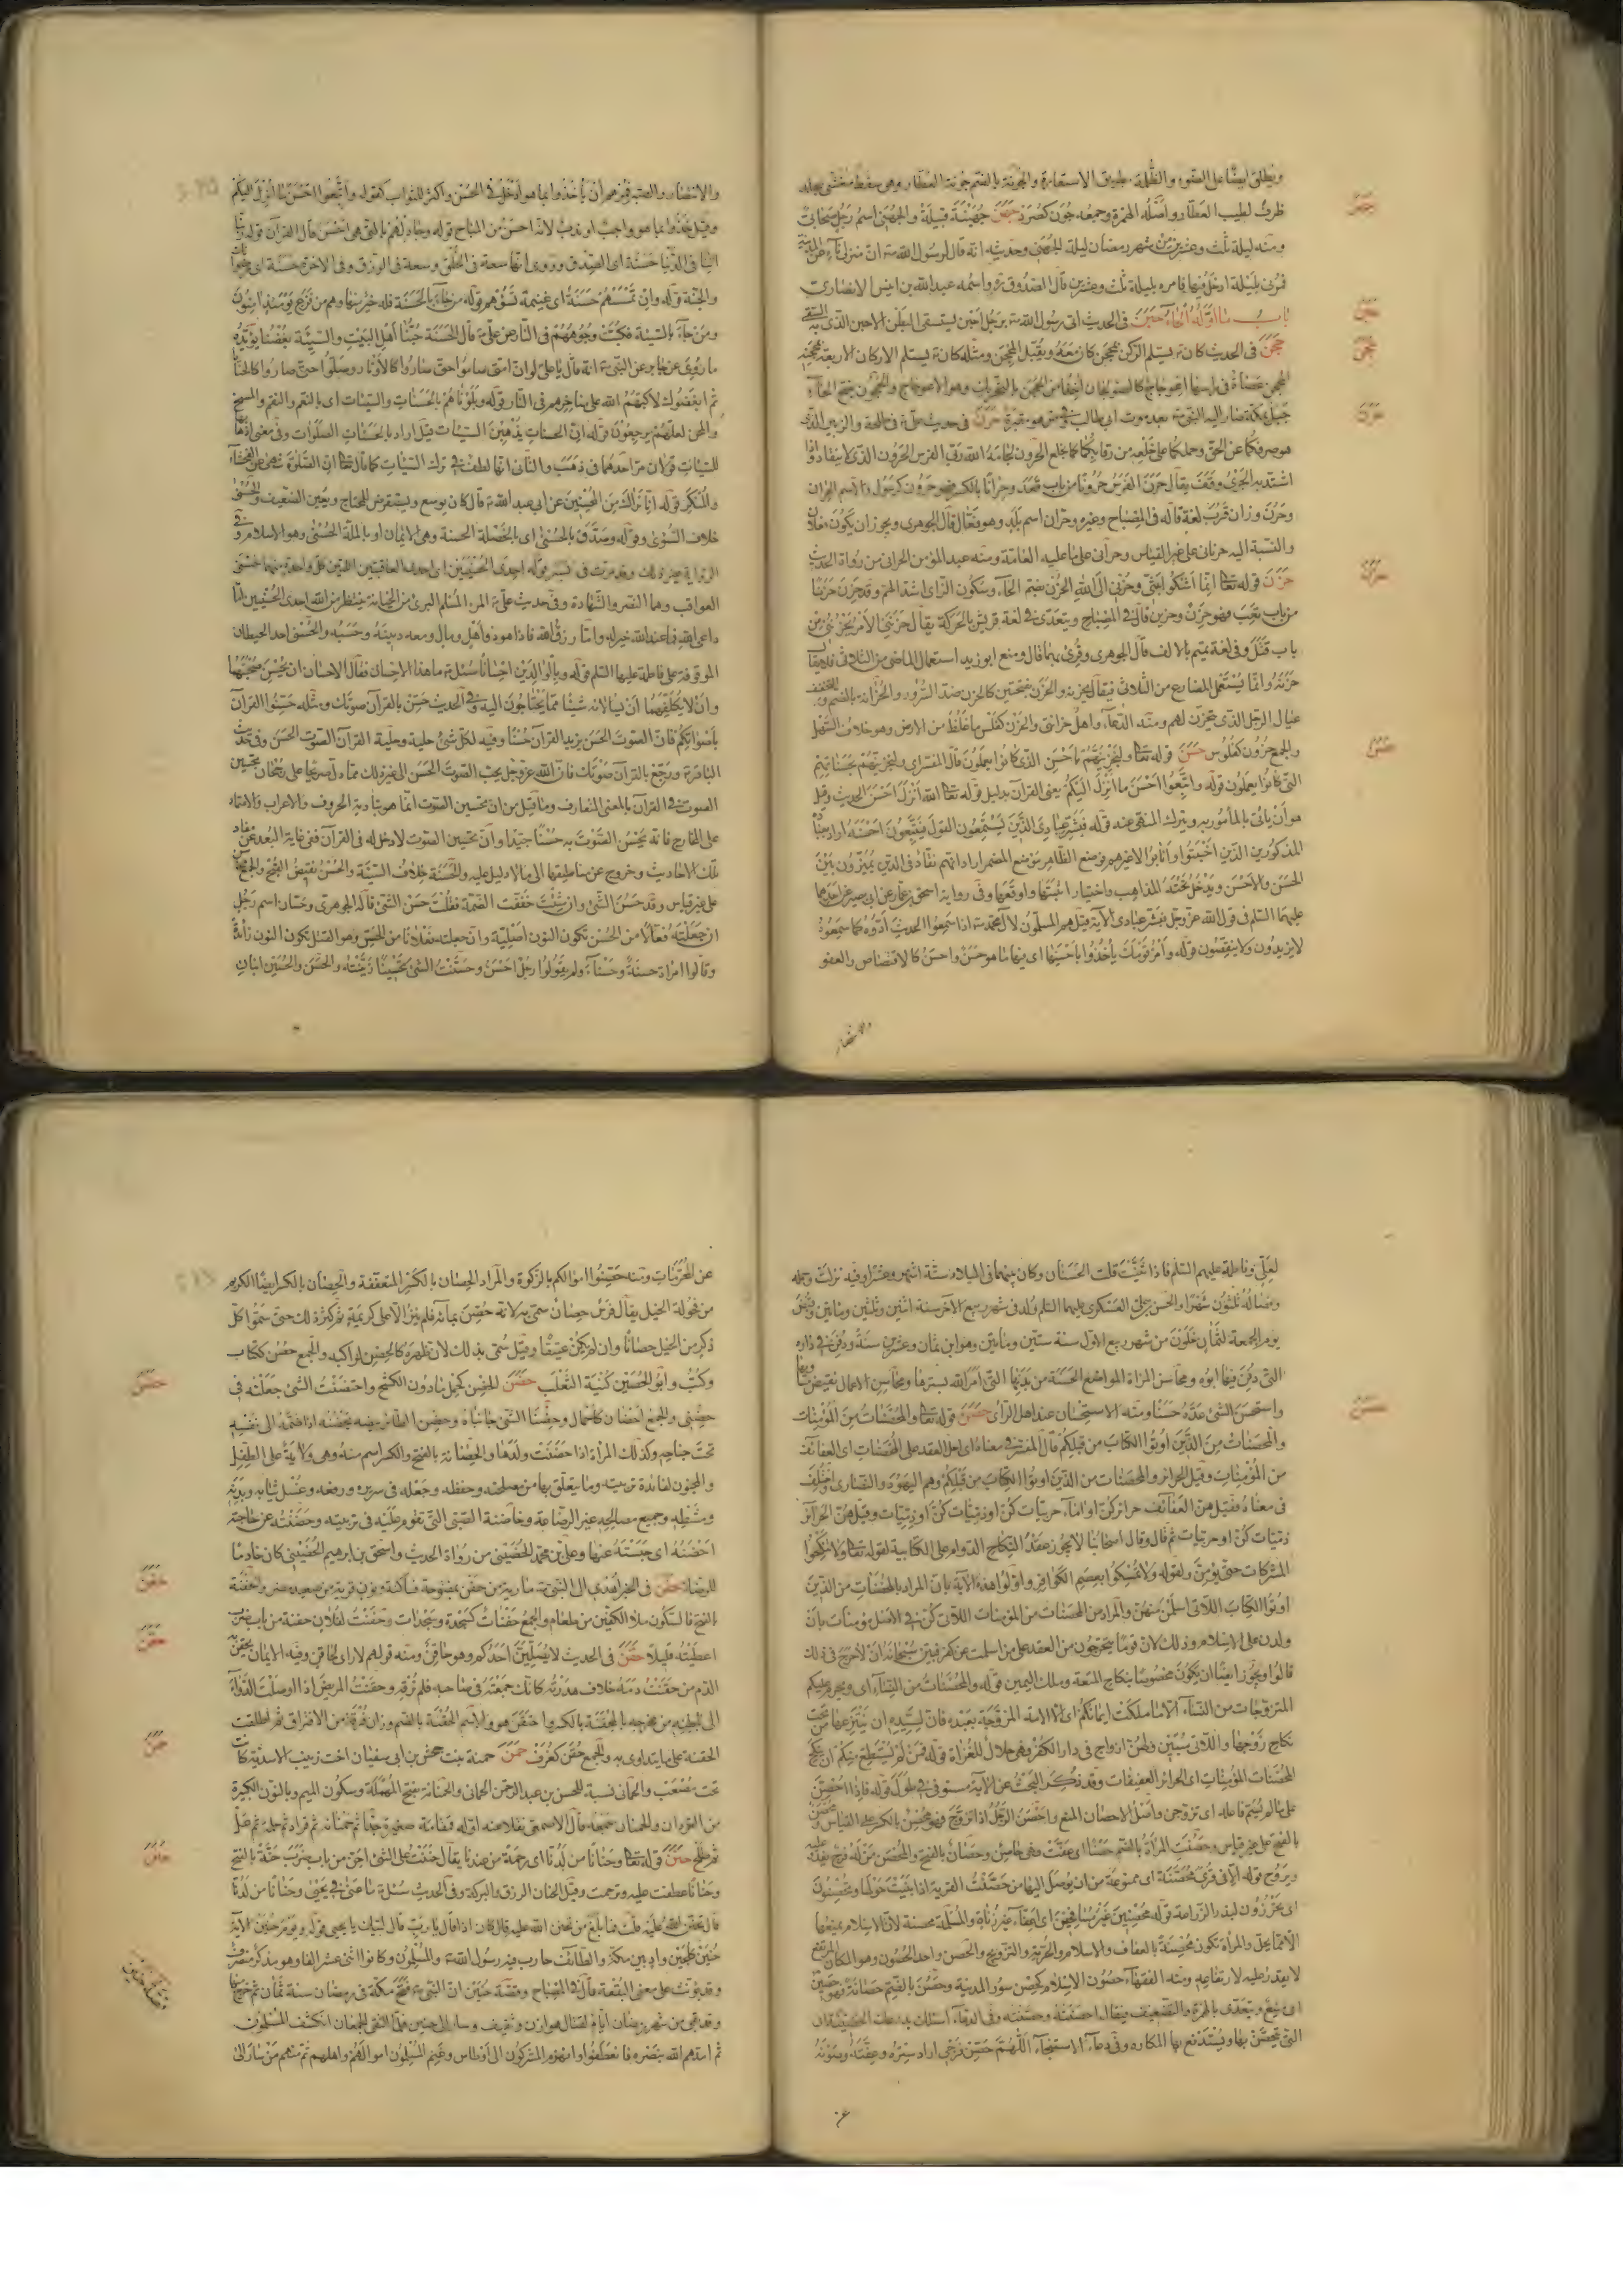 ويطلق ايضا على الضوء والظلمة بطريق الاستعارة والجونة بالضم جونة العطار وهي سفط مغشى بجلد
ظرف لطيب العطار واصله الهمزة وجمعه جون كصرد جهن جهينة قبيلة والجهني اسم رجل صحابي
ومنه ليلة ثلث وعشرين من شهر رمضان ليلة الجهني وحديثه انه قال لرسول الله ان منزلي ناء عن المدينة
فمرني بليلة ادخل فيها فامره بليلة ثلث وعشرين قال الصدوق واسمه عبد الله بن انيس الانصاري
باب ما اوله الحاء حبن في الحديث اتى رسول الله برجل احبن يستسقي البطن الاحبن الذي به السقي
حجن في الحديث كان يستلم الركن بمحجن كان معه ويقبل المحجن ومثله كان يستلم الاركان الاربعة بمحجنه
المحجن عصاة في راسها اعوجاج كالصولجان اخذا من الحجن بالتحريك وهو الاعوجاج والحجون بفتح الحاء
جبل بمكة صار اليه النبي بعد موت ابي طالب مقبرة حرن في حديث علي في طلحة والزبير الذي
اشتد به الجري وقف يقال حرن الفرس حرونا من باب قعد وحرانا بالكسر فهو حرون كرسول والاسم الحران
وحرن وزان قرب لغة قاله في المصباح وغيره وحران اسم بلد وهو فعال قال الجوهري ويجوز ان يكون فعلان
والنسبة اليه حرناني على غير القياس وحراني على ما عليه العامة ومنه عبد المؤمن الحراني من رواة الحديث
حزن قوله تعالى انما اشكوا بثي وحزني الى الله الحزن بضم الحاء وسكون الزاي اشد الهم وقد حزن حزنا
من باب تعب فهو حزن وحزين قال في المصباح ويتعدى في لغة قريش بالحركة يقال حزنني الامر يحزنني من
باب قتل وفي لغة تميم بالالف قال الجوهري وقرئ بهما قال ومنع ابو زيد استعمال الماضي من الثلاثي
حزنه وانما يستعمل المضارع من الثلاثي فيقال يحزنه والحزن بفتحتين كالحزن ضد السرور والحزانة بالضم والتخفيف
عيال الرجل الذي يتحزن لهم ومنه الدعاء واهل حزانتي والحزن كفلس ما غلظ من الارض وهو خلاف السهل
والجمع حزون كفلوس حسن قوله تعالى ولنجزينهم باحسن الذي كانوا يعملون قال المفسر اي ولنجزينهم بحسناتهم
التي كانوا يعملون قوله واتبعوا احسن ما انزل اليكم يعني القرآن بدليل قوله تعالى الله انزل احسن الحديث وقيل
هو ان يأتي بالمأمور به ويترك المنهي عنه قوله فبشر عبادي الذين يستمعون القول فيتبعون احسنه اراد
المذكورين الذين اخبتوا وانابوا لا غيرهم فوضع الظاهر موضع المضمر اراد انهم نقاد في الدين يميزون بين
الحسن والاحسن ويدخل تحته المذاهب واختيار اثبتها واوقعها وفي رواية اسحق بن عمار عن ابي بصير عن احدهما
عليهما السلم في قول الله عز وجل فبشر عبادي الآية قيل هم المسلمون لآل محمد اذا سمعوا الحديث ادوه كما سمعوه
لا يزيدون ولا ينقصون قوله وأمر قومك يأخذوا باحسنها اي فيها ما هو حسن واحسن كالاقتصاص والعفو
والانتصار
والانتصار والصبر فمرهم ان يأخذوا بما هو ادخل في الحسن واكثر للثواب كقوله واتبعوا احسن ما انزل اليكم
وقيل خذوا بما هو واجب او ندب لانه احسن من المباح قوله وجادلهم بالتي هي احسن قال القرآن قوله ربنا
اتنا في الدنيا حسنة اي الصدق وروي انها سعة في الخلق وسعة في الرزق وفي الاخرة حسنة اي رضوانك
والجنة قوله وان تمسسهم حسنة اي غنيمة تسؤهم قوله من جاء بالحسنة فله خير منها وهم من فزع يومئذ امنون
ومن جاء بالسيئة فكبت وجوههم في النار عن علي قال الحسنة حبنا اهل البيت والسيئة بغضنا يؤيده
ما روي عن جابر عن النبي انه قال يا علي لو ان امتي صاموا حتى صاروا كالاوتار وصلوا حتى صاروا كالحنايا
ثم ابغضوك لاكبهم الله على مناخرهم في النار قوله وبلوناهم بالحسنات والسيئات اي بالنعم والنقم
والمحن لعلهم يرجعون قوله ان الحسنات يذهبن السيئات قيل اراد بالحسنات الصلوات وفي معنى اذهابها
للسيئات قولان مر احدهما في ذهب والثاني انها لطف في ترك السيئات كما قال تعالى ان الصلوة تنهى عن الفحشاء
والمنكر قوله انا نراك من المحسنين عن ابي عبد الله قال كان يوسع ويستقرض للمحتاج ويعين الضعيف والحسنى
خلاف السوئى وقوله وصدق بالحسنى اي بالخصلة الحسنة وهي الايمان او بالملة الحسنى وهو الاسلام
العواقب وهما النصر والشهادة وفي حديث علي المرء المسلم البرئ من الخيانة ينتظر من الله احدى الحسنيين اما
داعي الله فما عند الله خير له واما رزق الله فاذا هو ذو اهل ومال ومعه دينه وحسبه والحسنى احد الحيطان
الموقوفة على فاطمة عليها السلم قوله وبالوالدين احسانا سئل ما هذا الاحسان فقال الاحسان ان يحسن صحبتهما
وان لا يكلفهما ان يسالانه شيئا مما يحتاجون اليه وفي الحديث حسن بالقرآن صوتك ومثله حسنوا القرآن
باصواتكم فان الصوت الحسن يزيد القرآن حسنا وفيه لكل شئ حلية وحلية القرآن الصوت الحسن وفي حديث
الباقر ورجع بالقرآن صوتك فان الله عز وجل يحب الصوت الحسن الى غير ذلك مما دل صريحا على رجحان تحسين
الصوت في القرآن بالمعنى المتعارف وما قيل من ان تحسين الصوت انما هو بتادية الحروف والاعراب والاعتماد
على المخارج فانه يحسن الصوت به حسنا جيدا وان تحسين الصوت لا دخل له في القرآن ففي غاية البعد عن مفاد
تلك الاحاديث وخروج عن مناطيقها الى ما لا دليل عليه والحسنة خلاف السيئة والحسن نقيض القبح والجمع محاسن
على غير قياس وقد حسن الشئ وان شئت خففت الضمة فقلت حسن الشئ قاله الجوهري وحسان اسم رجل
ان جعلته فعالا من الحسن تكون النون اصلية وان جعلته فعلانا من الحس وهو القتل تكون النون زائدة
وقالوا امراة حسنة وحسناء ولم يقولوا رجل احسن وحسنت الشئ تحسينا زينته والحسن والحسين ابنان
لعلي وفاطمة عليهم السلم فاذا ثنيت قلت الحسنان وكان بينهما في الميلاد ستة اشهر وعشرا وفيه نزلت وحمله
وفصاله ثلثون شهرا والحسن بن علي العسكري عليهما السلم ولد في شهر ربيع الآخر سنة اثنين وثلثين ومايتين وقبض
يوم الجمعة لثمان خلون من شهر ربيع الاول سنة ستين ومأتين وهو ابن ثمان وعشرين سنة ودفن في داره
التي دفن فيها ابوه ومحاسن المراة المواضع الحسنة من بدنها التي امر الله بسترها ومحاسن الاعمال نقيض مساويها
واستحسن الشئ عده حسنا ومنه الاستحسان عند اهل الرأى حصن قوله تعالى والمحصنات من المؤمنات
والمحصنات من الذين اوتوا الكتاب من قبلكم قال المفسر في معناه اي احل العقد على المحصنات اي العفائف
من المؤمنات وقيل الحرائر والمحصنات من الذين اوتوا الكتاب من قبلكم وهم اليهود والنصارى واختلف
في معناه فقيل هن العفائف حرائر كن او اماء حربيات كن او ذميات وقيل هن الحرائر
ذميات كن او حربيات ثم قال وقال اصحابنا لا يجوز عقد النكاح الدوام على الكتابية لقوله تعالى ولا تنكحوا
المشركات حتى يؤمن ولقوله ولا تمسكوا بعصم الكوافر واولوا هذه الآية بان المراد بالمحصنات من الذين
اوتوا الكتاب اللاتي اسلمن منهن والمراد من المحصنات من المؤمنات اللاتي كن في الاصل مؤمنات بان
ولدن على الاسلام وذلك لان قوما يتحرجون من العقد على من اسلمت عن كفر فبين سبحانه ان لا حرج في ذلك
قالوا ويجوز ايضا ان يكون مخصوصا بنكاح المتعة وملك اليمين قوله والمحصنات من النساء اي وحرم عليكم
المتزوجات من النساء الا ما ملكت ايمانكم اي الا الامة المزوجة بعبده فان لسيده ان ينتزعها من تحت
نكاح زوجها واللاتي سبين ولهن ازواج في دار الكفر فهي حلال للغزاة قوله فمن لم يستطع منكم ان ينكح
المحصنات المؤمنات اي الحرائر العفيفات وقد ذكر البحث عن الآية مستوفى في طول قوله فاذا احصن
على ما لم يسم فاعله اي تزوجن واصل الاحصان المنع واحصن الرجل اذا تزوج فهو محصن بالكسر على القياس ومحصن
بالفتح على غير قياس وحصنت المرأة بالضم حصنا اي عفت فهي حاصن وحصان بالفتح والمحصن من له فرج يغدو عليه
ويروح قوله الا في قرى محصنة اي ممنوعة من ان يوصل اليها من حصنت القرية اذا بنيت حولها وتحصنون
اي تحرزون لبذر الزراعة قوله محصنين غير مسافحين اي اعفاء غير زناة والمسلمة محصنة لان الاسلام يمنعها
الا مما يحل والمرأة تكون محصنة بالعفاف والاسلام والحرية والتزويج والحصن واحد الحصون وهو المكان المرتفع
لا يقدر عليه لارتفاعه ومنه الفقهاء حصون الاسلام كحصن سور المدينة وحصن بالضم حصانة فهو حصين
اي منيع ويتعدى بالهمزة والتضعيف فيقال احصنته وحصنته وفي الدعاء اسئلك بدرعك الحصينة
التي يتحصن بها ويستدفع بها المكاره وفي دعاء الاستنجاء اللهم حصن فرجي اراد ستره وعفته وصونه
عن
عن المحرمات ومنه حصنوا اموالكم بالزكوة والمراد الحصان بالكسر المتعففة والحصان بالكسر ايضا الكريم
من فحولة الخيل يقال فرس حصان سمي به لانه حصن بمائه فلم ينز الا على كريمة ثم كثر ذلك حتى سموا كل
ذكر من الخيل حصانا وان لم يكن عتيقا وقيل سمي بذلك لان ظهره كالحصن لراكبه والجمع حصن ككتاب
وكتب وابو الحصين كنية الثعلب حضن الحضن كحمل ما دون الكشح واحتضنت الشئ جعلته في
حضني والجمع احضان كاحمال وحضنا الشئ جانباه وحضن الطائر بيضه يحضنه اذا ضمه الى نفسه
تحت جناحه وكذلك المرأة اذا حضنت ولدها والحضانة بالفتح والكسر اسم منه وهي ولاية على الطفل
والمجنون لفائدة تربيته وما يتعلق بها من مصلحته وحفظه وجعله في سريره ورفعه وغسل ثيابه وبدنه
ومشطه وجميع مصالحه غير الرضاعة وحاضنة الصبي التي تقوم عليه في تربيته وحضنته عن حاجته
احضنه اي حبسته عنها وعلي بن محمد الحضيني من رواة الحديث واسحق بن ابراهيم الحضيني كان خادما
للرضا حفن في الخبر اهدى الى النبي مارية من حفن بمفتوحة فساكنة ونون قرية من صعيد مصر والحفنة
بالفتح فالسكون ملأ الكفين من طعام والجمع حفنات كسجدة وسجدات وحفنت لفلان حفنة من باب ضرب
اعطيته قليلا حقن في الحديث لا يصلين احدكم وهو حاقن ومنه قولهم لا رأى لحاقن وفيه الايمان يحقن به
الدم من حقنت دمه خلاف هدرته كانك جمعته في صاحبه فلم ترقه وحقنت المريض اذا اوصلت الدواء
الى باطنه من مخرجه بالمحقنة بالكسر واحتقن هو والاسم الحقنة بالضم وزان فرقة من الافتراق ثم اطلقت
الحقنة على ما يتداوى به والجمع حقن كغرف حمن حمنة بنت جحش بن ابي سفيان اخت زينب الاسدية كانت
تحت مصعب والحماني نسبة للحسن بن عبد الرحمن الحماني والحمنانة بفتح المهملة وسكون الميم وبالنون الكبيرة
من القردان والحمنان جمعه قال الاصمعي نقلا عنه اوله قمقامة صغيرة جدا ثم حمنانة ثم قراد ثم حلم ثم عل
ثم طلح حنن قوله تعالى وحنانا من لدنا اي رحمة من عندنا يقال حننت على الشئ احن من باب ضرب حنة بالفتح
وحنانا عطفت عليه وترحمت وقيل الحنان الرزق والبركة وفي الحديث سئل ما عنى في يحيى وحنانا من لدنا
قال تحنن الله عليه قلت فما بلغ من تحنن الله عليه قال كان اذا قال يا رب قال لبيك يا يحيى قوله ويوم حنين الآية
حنين واد بين مكة والطائف حارب فيه رسول الله والمسلمون وكانوا اثنى عشر الفا وهو مذكر منصرف
وقد يؤنث على معنى البقعة قال في المصباح وقصة حنين ان النبي فتح مكة في رمضان سنة ثمان ثم خرج منها
وقد بقي من شهر رمضان ايام لقتال هوازن وثقيف وسار الى حنين فلما التقى الجمعان انكشف المسلمون
ثم امدهم الله بنصره فانعطفوا وانهزم المشركون الى اوطاس وغنم المسلمون اموالهم واهليهم ثم منهم من سار الى
جهن
حبن
حجن
حرن
حزن
حسن
حصن
حضن
حفن
حقن
حمن
حنن
قصة حنين